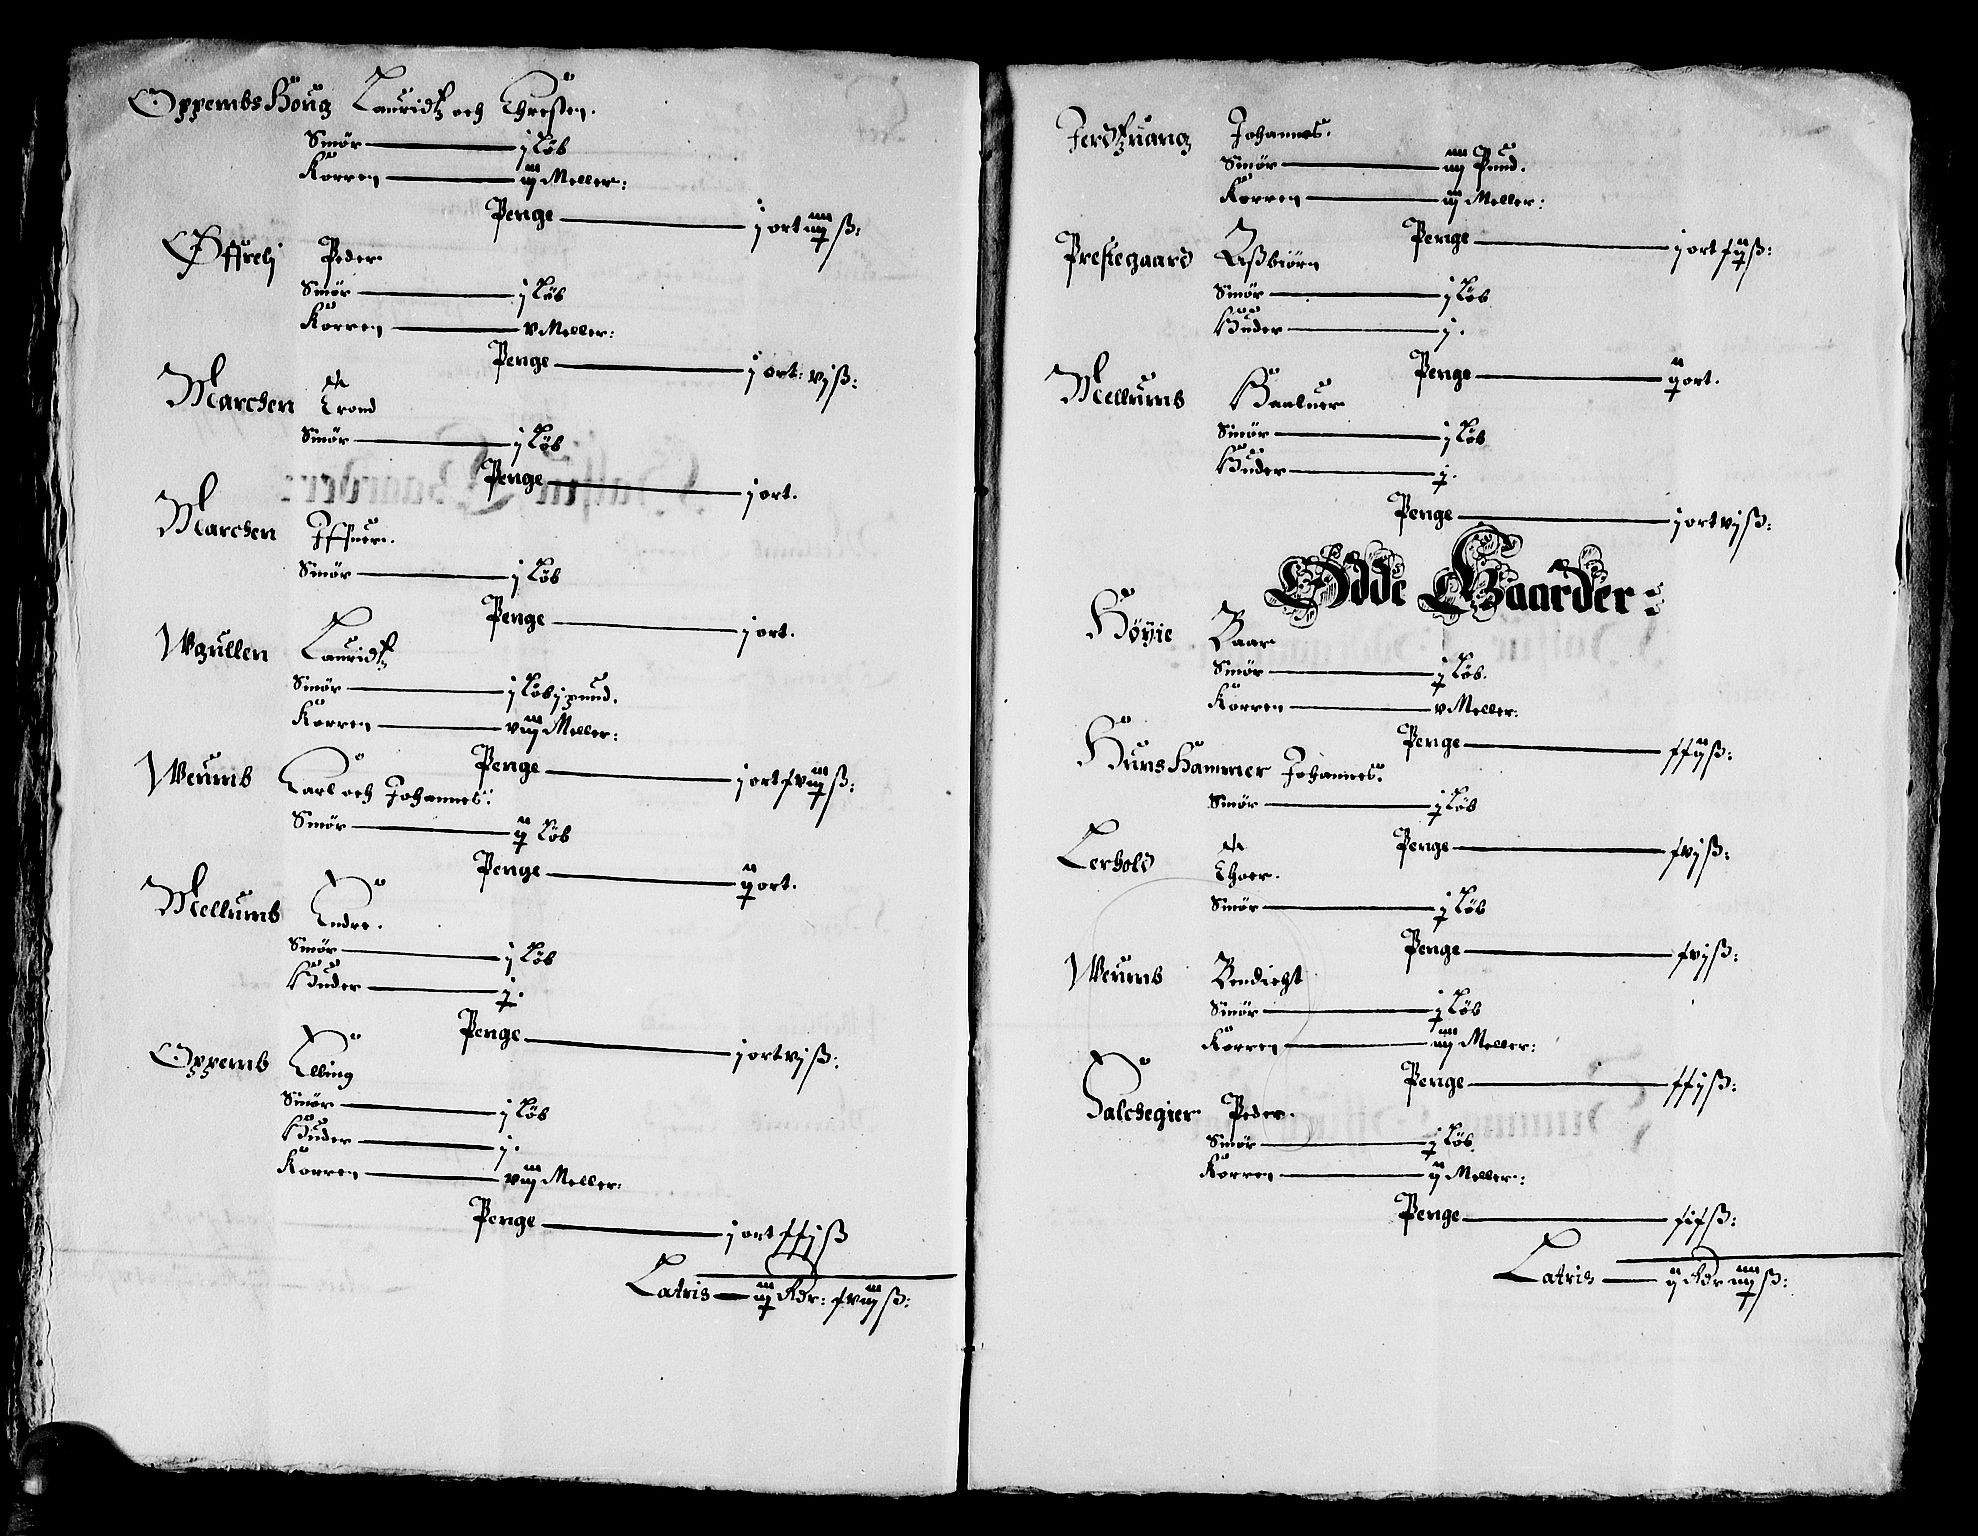 Oppembs Houg Lauridtz och Chresten.
Smør — j Løb
Korren — iij Meller:
Penge — j ort iiij ß:
Øffrelj Peder
Smør — j Løb
Korren — v Meller:
Penge — j ort: vj ß:
Marchen Trond
Smør — j Løb
Penge — j ort.
Marchen Iffuer.
Smør — j Løb
Penge — j ort.
Wgullen Lauridtz
Smør — j Løb j pund.
Korren — viij Meller:
Penge — j ort xviij ß:
Weumb Carl och Johannes:
Smør — ij Løb
Penge — ij ort.
Mellumb Endre.
Smør — j Løb
Huder — j.
Penge — j ort vj ß:
Oppemb Elling
Smør — j Løb
Huder — j.
Korren — viij Meller:
Penge — j ort xxj ß
Latris — iij Rdr: xviij ß:
Jerdtzuang Johannes.
Smør — iiij Pund.
Korren — iij Meller:
Penge — j ort xij ß:
Prestegaard Aßbiørn
Smør — j Løb
Huder — j.
Penge — ij ort.
Mellumb Haaluer
Smør — j Løb
Huder — j.
Penge — j ort vj ß:
Ødde Gaarder:
Høyie Baar
Smør — j Løb.
Korren — v Meller:
Penge — xxij ß:
Huns Hammer Johannes:
Smør — j Løb
Penge — xvj ß:
Lerhold Thoer.
Smør — j Løb
Penge — xvj ß:
Weumb Bendicht
Smør — j Løb
Korren — iiij Meller:
Penge — xxj ß:
Salchegier Peder.
Smør — j Løb
Korren — ij Meller:
Penge — xix ß:
Latris — ij Rdr iiij ß: